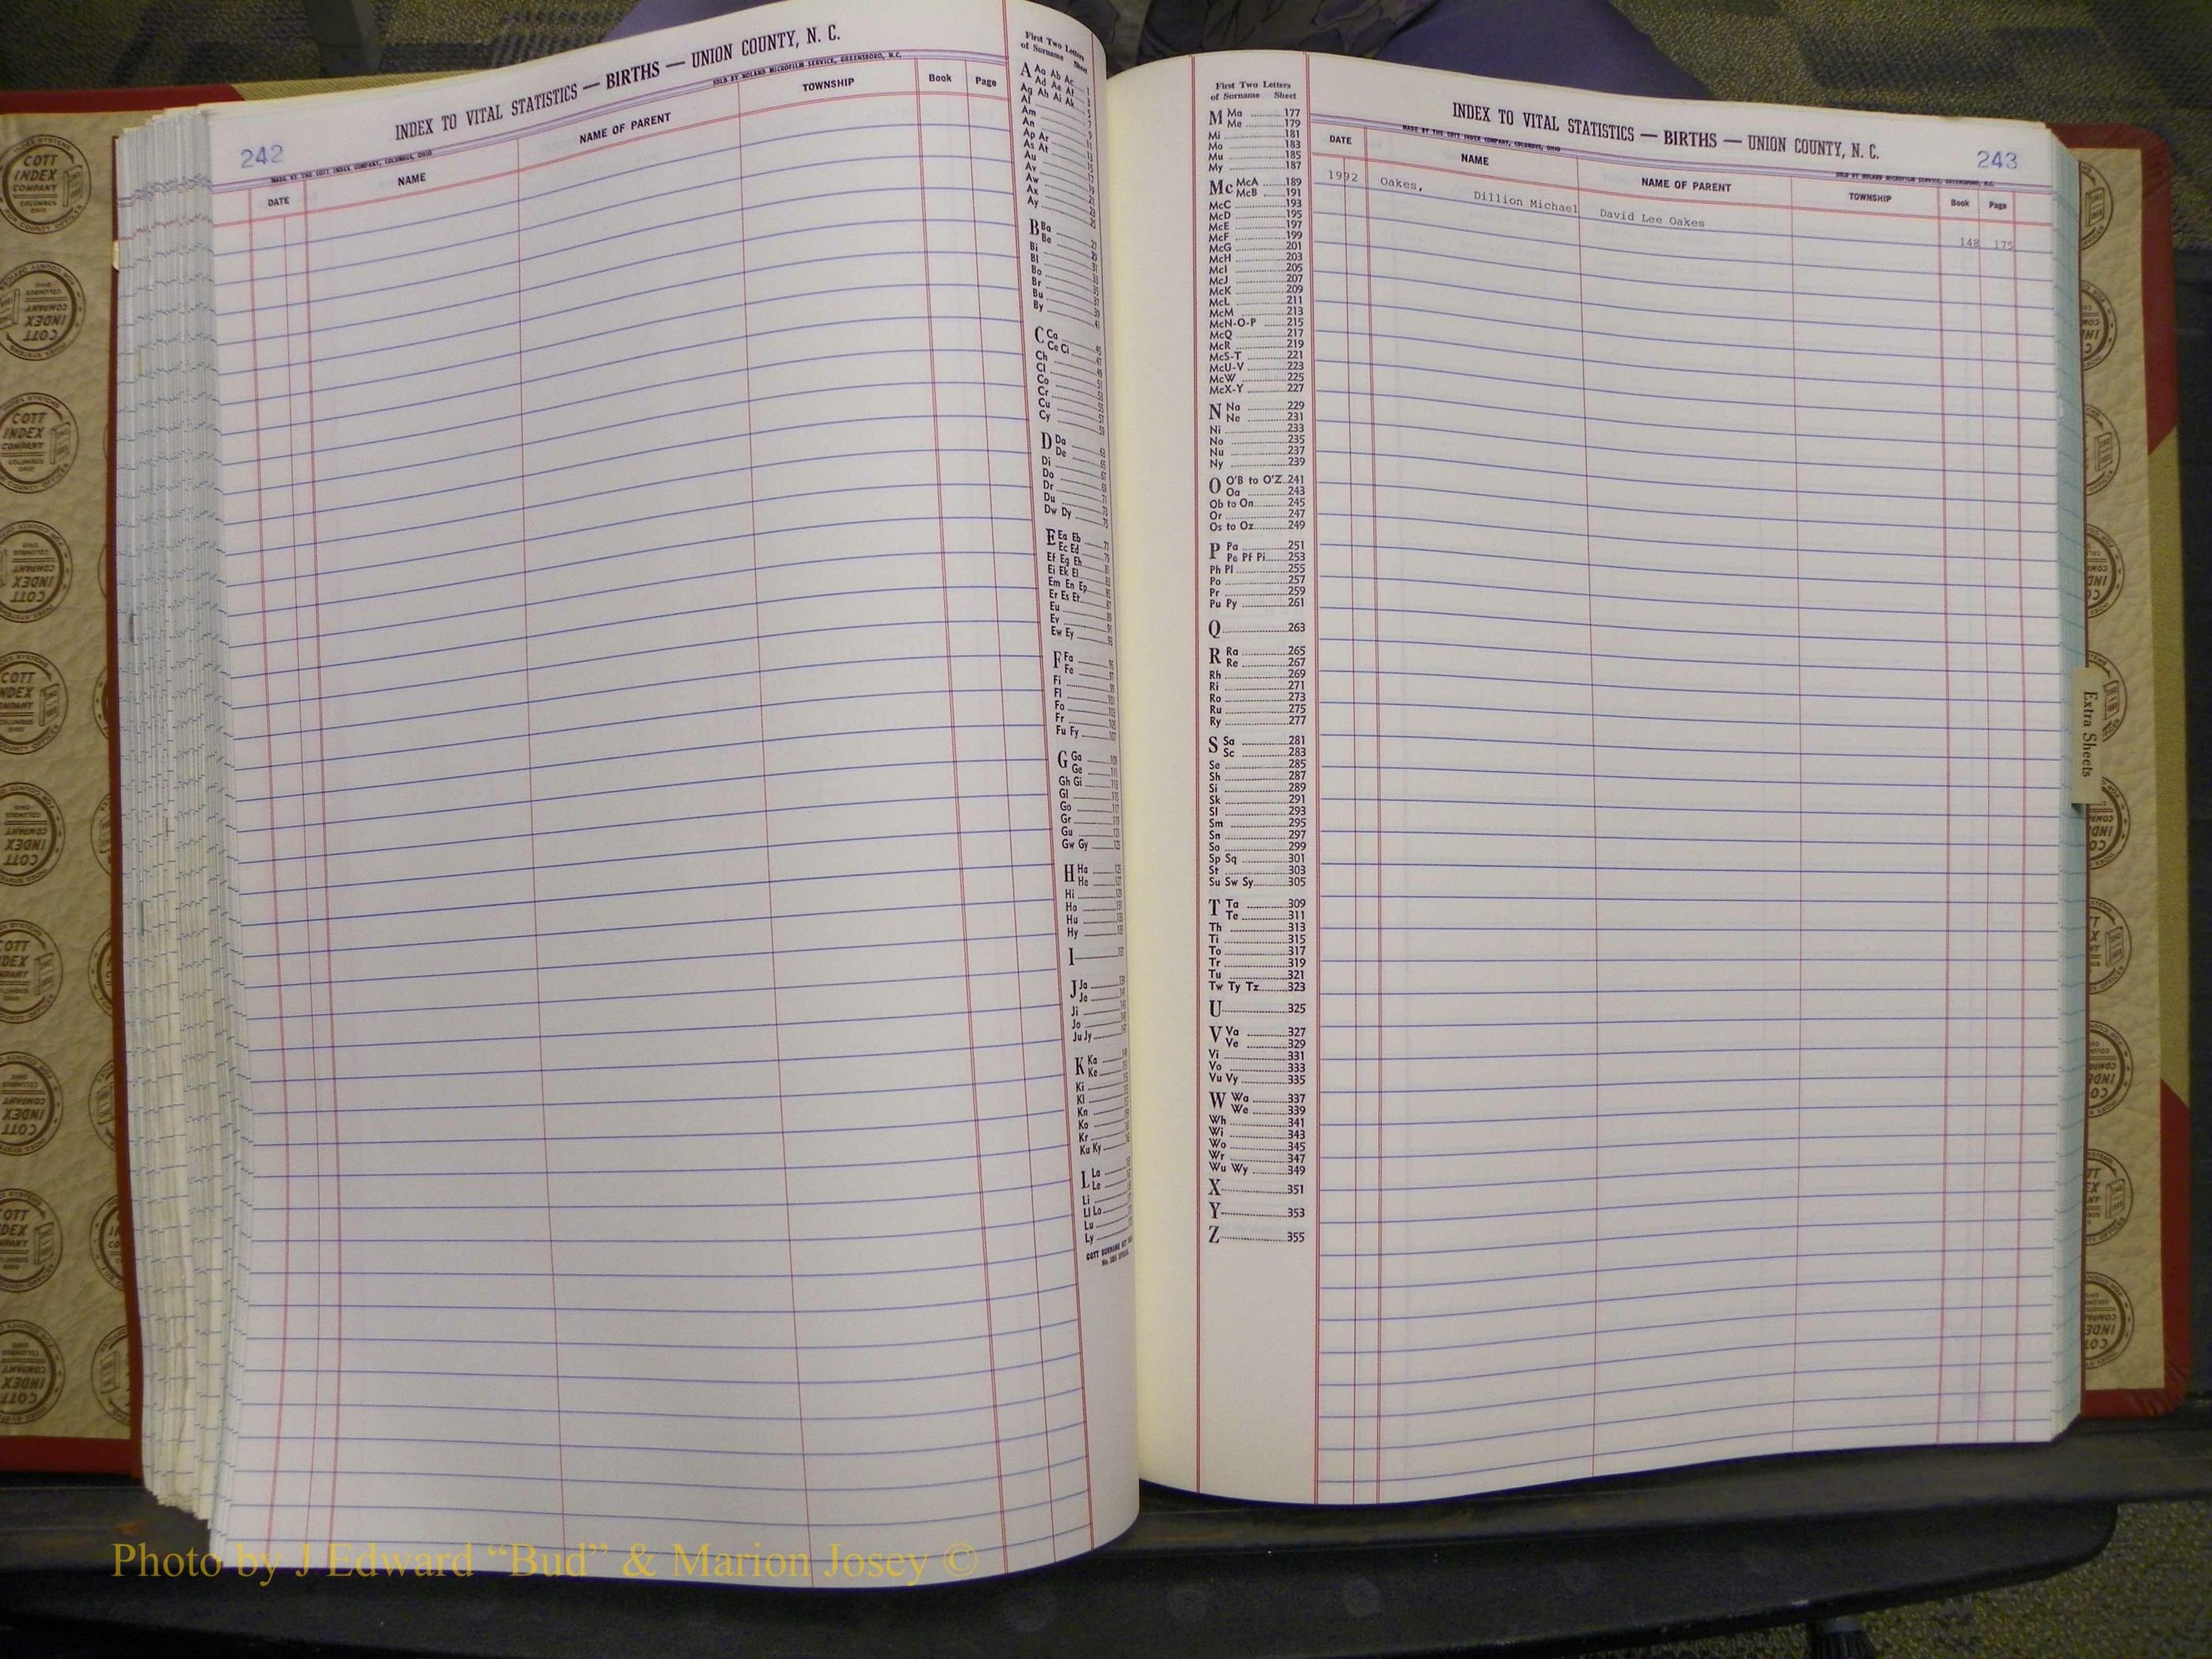 242
INDEX TO VITAL STATISTICS — BIRTHS — UNION COUNTY, N. C.
MADE BY THE COTT INDEX COMPANY, COLUMBUS, OHIO
SOLD BY NOLAND MICROFILM SERVICE, GREENSBORO, N.C.
DATE NAME NAME OF PARENT TOWNSHIP Book Page
First Two Letters
of Surname Sheet
A Aa Ab Ac
Ad Ae Af
Ag Ah Ai Ak
Al
Am
An
Ap Ar
As At
Au
Av
Aw
Ax
Ay
B Ba
Be
Bi
Bl
Bo
Br
Bu
By
C Ca
Ce Ci
Ch
Cl
Co
Cr
Cu
Cy
D Da
De
Di
Do
Dr
Du
Dw Dy
E Ea Eb
Ec Ed
Ef Eg Eh
Ei Ek El
Em En Ep
Er Es Et
Eu
Ev
Ew Ey
F Fa
Fe
Fi
Fl
Fo
Fr
Fu Fy
G Ga
Ge
Gh Gi
Gl
Go
Gr
Gu
Gw Gy
H Ha
He
Hi
Ho
Hu
Hy
I
J Ja
Je
Ji
Jo
Ju Jy
K Ka
Ke
Ki
Kl
Kn
Ko
Kr
Ku Ky
L La
Le
Li
Ll Lo
Lu
Ly
First Two Letters
of Surname Sheet
M Ma 177
Me 179
Mi 181
Mo 183
Mu 185
My 187
Mc McA 189
McB 191
McC 193
McD 195
McE 197
McF 199
McG 201
McH 203
McI 205
McJ 207
McK 209
McL 211
McM 213
McN-O-P 215
McQ 217
McR 219
McS-T 221
McU-V 223
McW 225
McX-Y 227
N Na 229
Ne 231
Ni 233
No 235
Nu 237
Ny 239
O O'B to O'Z 241
Oa 243
Ob to On 245
Or 247
Os to Oz 249
P Pa 251
Pe Pf Pi 253
Ph Pl 255
Po 257
Pr 259
Pu Py 261
Q 263
R Ra 265
Re 267
Rh 269
Ri 271
Ro 273
Ru 275
Ry 277
S Sa 281
Sc 283
Se 285
Sh 287
Si 289
Sk 291
Sl 293
Sm 295
Sn 297
So 299
Sp Sq 301
St 303
Su Sw Sy 305
T Ta 309
Te 311
Th 313
Ti 315
To 317
Tr 319
Tu 321
Tw Ty Tz 323
U 325
V Va 327
Ve 329
Vi 331
Vo 333
Vu Vy 335
W Wa 337
We 339
Wh 341
Wi 343
Wo 345
Wr 347
Wu Wy 349
X 351
Y 353
Z 355
INDEX TO VITAL STATISTICS — BIRTHS — UNION COUNTY, N. C.
243
MADE BY THE COTT INDEX COMPANY, COLUMBUS, OHIO
SOLD BY NOLAND MICROFILM SERVICE, GREENSBORO, N.C.
DATE NAME NAME OF PARENT TOWNSHIP Book Page
1992 Oakes, Dillion Michael David Lee Oakes 148 175
Extra Sheets
COTT
INDEX
COMPANY
COLUMBUS
OHIO
Photo by J Edward “Bud” & Marion Josey ©